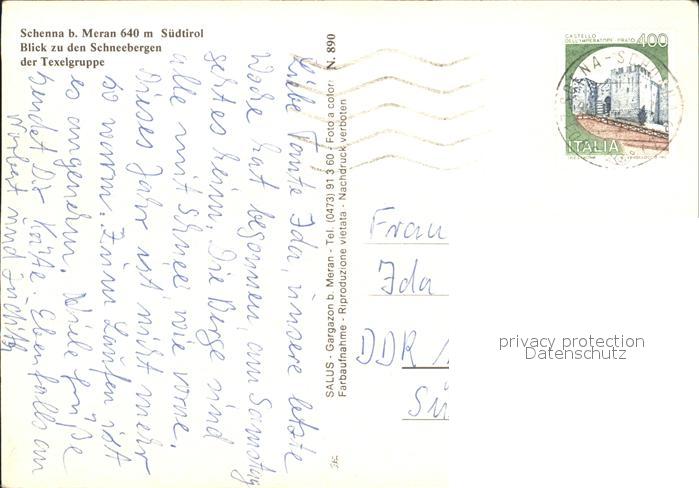 Schenna b. Meran 640 m Südtirol
Blick zu den Schneebergen
der Texelgruppe
Liebe Tante Ida, unsere letzte
Woche hat begonnen, am Samstag
geht es heim. Die Berge sind
alle mit Schnee wie vorne.
Dieses Jahr ist nicht mehr
so warm. Zum Laufen ist
es angenehm. Viele Grüße
sendet Dir Käte. Ebenfalls an
Norbert und Judith
SALUS - Gargazon b. Meran - Tel. (0473) 91 3 60 - Foto a color: N. 890
Farbaufnahme - Riproduzione vietata - Nachdruck verboten
CASTELLO
DELL'IMPERATORE PRATO 400
ITALIA
Frau
Ida
DDR
privacy protection
Datenschutz